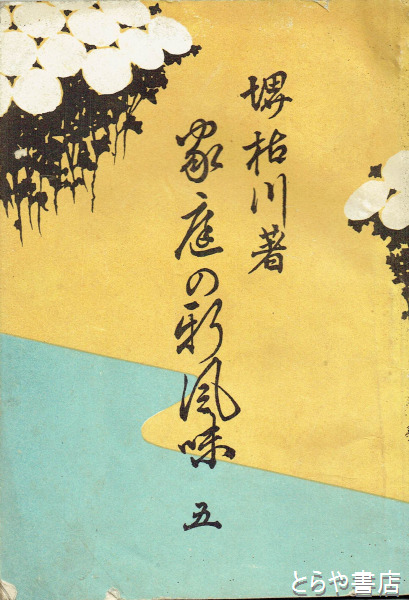 堺枯川著
家庭の新風味 五
とらや書店